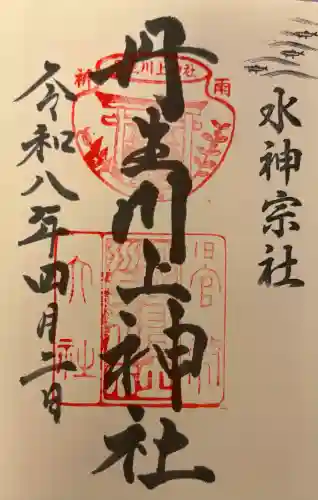 水神宗社
丹生川上神社
令和八年四月二日
丹生川上神社
祈
雨
旧官幣大社